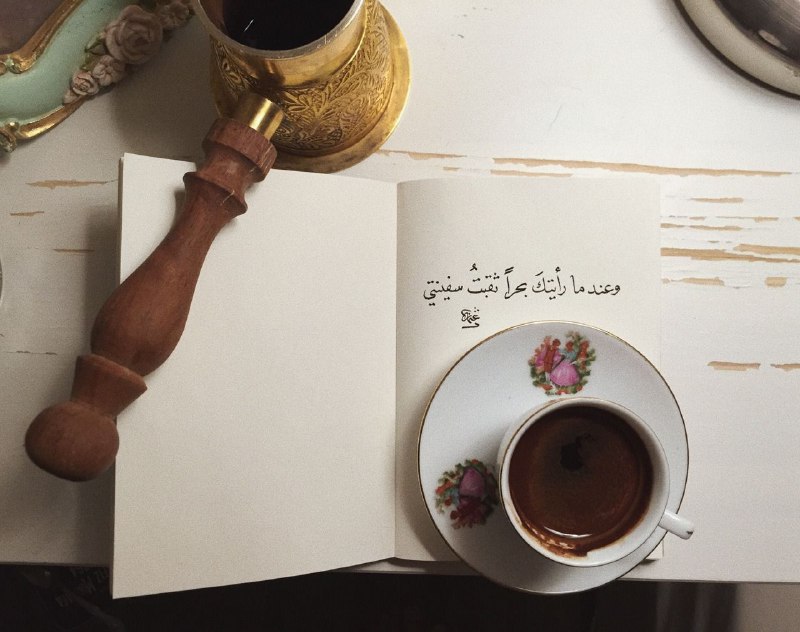 وعندما رأيتكَ بحراً ثقبتُ سفينتي